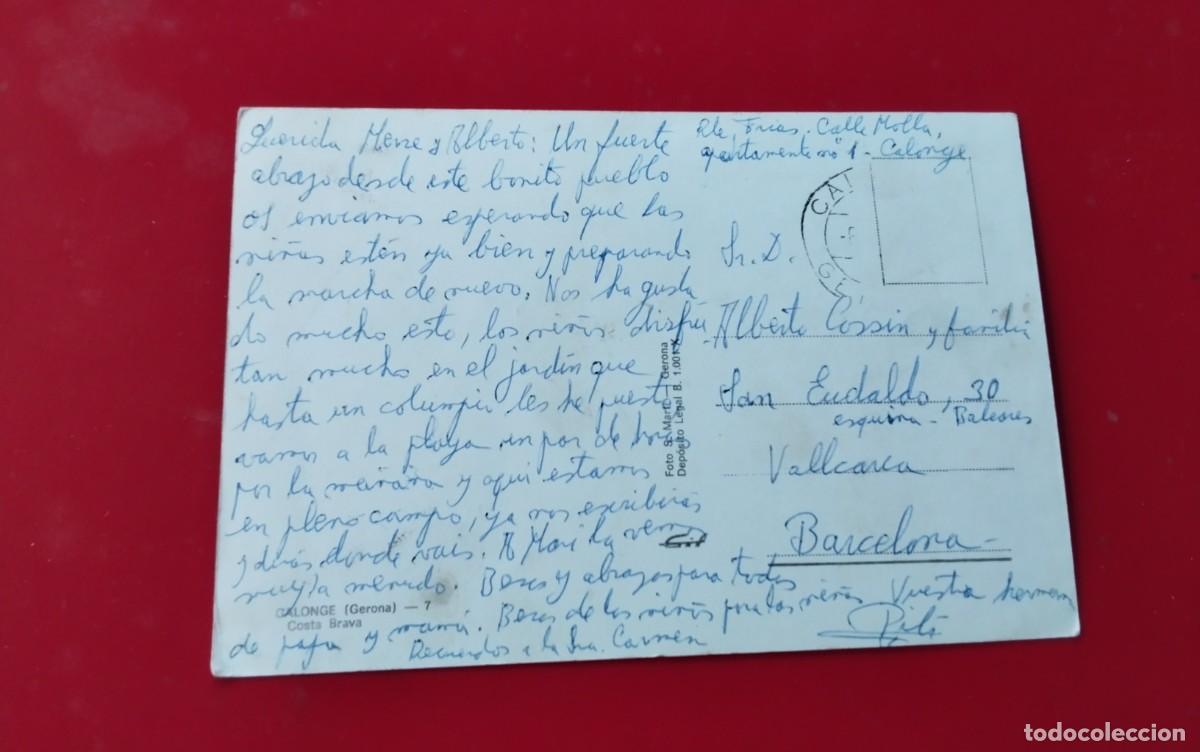 Querida Merce y Alberto: Un fuerte
abrazo desde este bonito pueblo
os enviamos esperando que las
niñas estén ya bien y preparando
la marcha de nuevo. Nos ha gusta
do mucho esto, los niños disfru
tan mucho en el jardin que
hasta un columpio les he puesto
vamos a la playa un par de horas
por la mañana y aqui estamos
en pleno campo, ya nos escribiras
y dirás donde vais. A Mari la vemos
muy a menudo. Besos y abrazos para todos
de papa y mamá. Besos de los niños para las niñas Vuestra hermana
Recuerdos a la Sra. Carmen
Pili
Rte, Frias. Calle Molla,
apartamento nº 1 - Calonge
Sr. D.
Alberto Cossin y familia
San Eudaldo, 30
esquina - Baleares
Vallcarca
Barcelona
CALONGE (Gerona) — 7
Costa Brava
Foto S. Martí - Gerona
Depósito Legal B. 1.001-X
todocoleccion